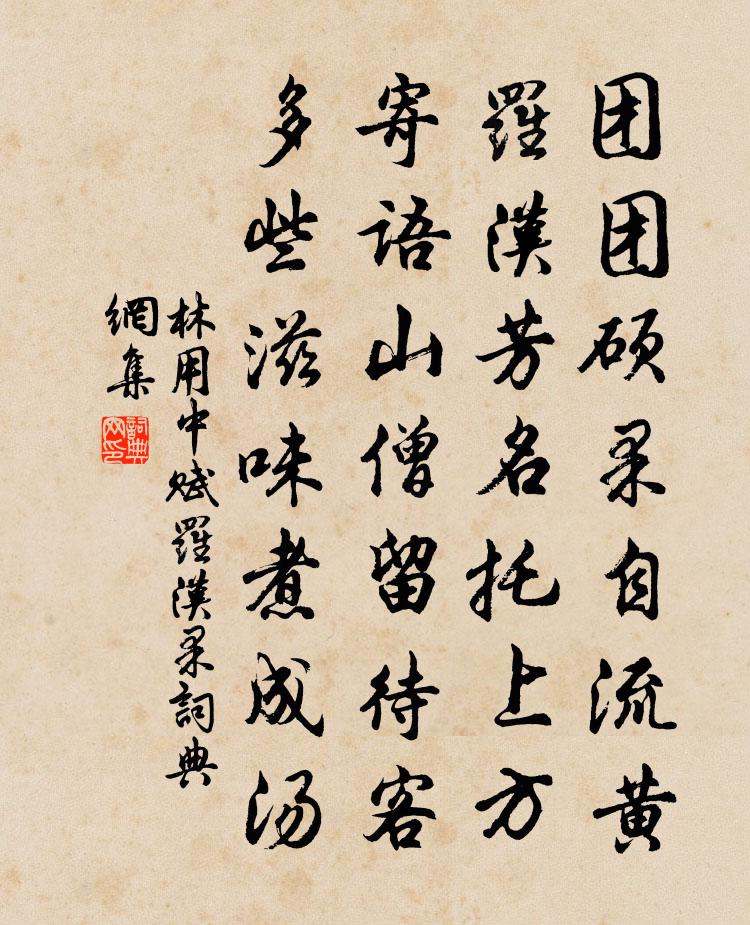 团团硕果自流黄
羅漢芳名托上方
寄语山僧留待客
多些滋味煮成汤
林用中赋羅漢果詞典
網集
詞典
网印